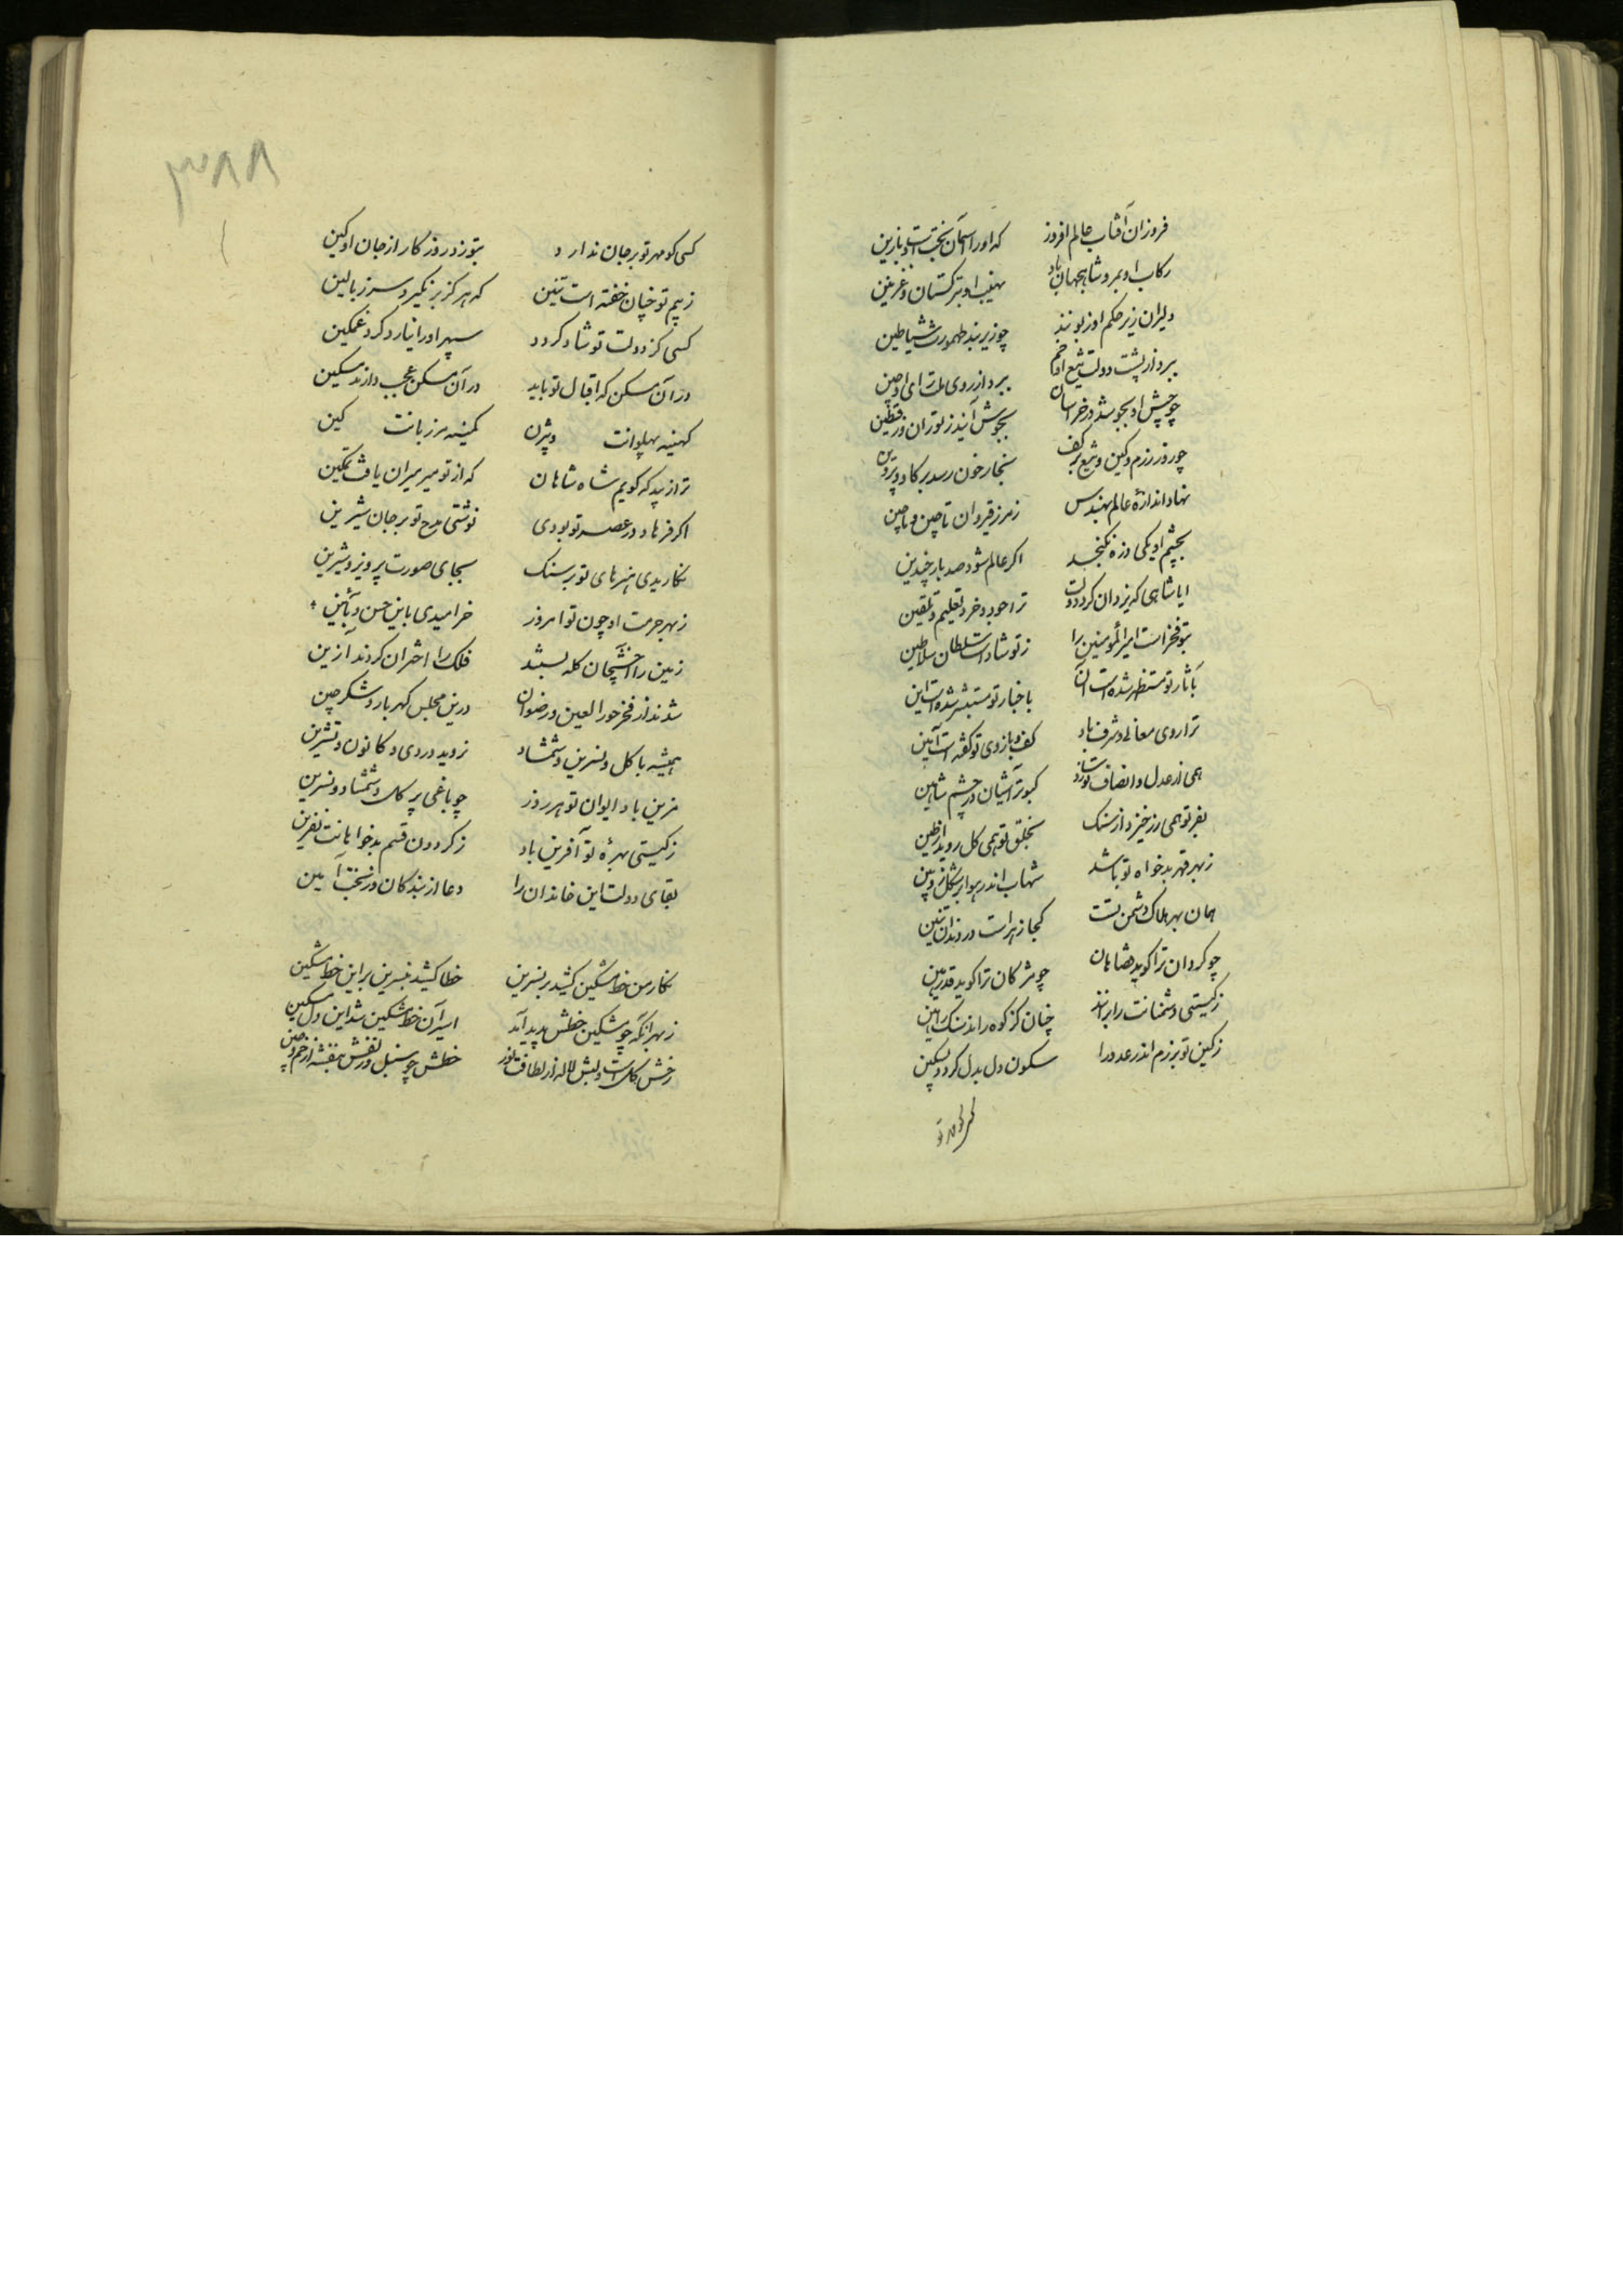 فروزان آفتاب عالم افروز که او را آسمان تخت است و با زین
رکاب او بمرو شاهجهان باد نهیب او بترکستان و غزنین
دلیران زیر حکم او زبونند چو زیر بند طهمورث شیاطین
ببرد از پشت دولت تیغ او خم ببرد از روی ملت رای او چین
چو جیش او بجوشد در خراسان بجوش آیند ز توران
چو در رزم و کین و تیغ بر کف بخار خون رسد بر گاو و پروین
نهاد اندازهٔ عالم مهندس ز مرز قیروان تا چین و ماچین
بچشم او یکی ذره نگنجد اگر عالم شود صد بار چندین
ایا شاهی که یزدان کرد و دولت ترا جود و خرد تعلیم و تلقین
بتو فخر است امیر المؤمنین را ز تو شاد است سلطان سلاطین
بآثار تو مستظهر شده است آن باخبار تو مستبشر شده است این
ترازوی معالی و شرف باد کف و بازوی تو کفه است آیین
همی از عدل و انصاف تو سازد کبوتر آشیان در چشم شاهین
بفر تو همی زر خیزد از سنگ بخلق تو همی گل روید از طین
ز بهر قهر بدخواه تو باشد شهاب اندر هوا بر شکل زوبین
همان بهر هلاک دشمن تست کجا زهر است در دندان تنین
چو گردان ترا گوید قضا هان چو ترکان ترا گوید قدر هین
ز گیتی دشمنانت را برانند چنان کز کوه رانند سنگ
ز کین تو برزم اندر عدو را سکون دل بدل گردد بسکین
کسی کو مهر تو
۳۸۸
کسی کو مهر تو بر جان ندارد بتوزد روزگار از جان او کین
ز بیم تو چنان خفته است تنین که هرگز بر نگیرد سر ز بالین
کسی کز دولت تو شاد گردد سپهر او را نیارد کرد غمگین
در آن مسکن که اقبال تو باید در آن مسکن عجب دارند مسکین
کهینه پهلوانت ویژن کمینه مرزبانت کین
ترا زیبد که گویم شاه شاهان که از تو میر میران یافت تمکین
اگر فرهاد در عصر تو بودی نوشتی مدح تو بر جان شیرین
نگاریدی هنرهای تو بر سنگ بجای صورت پرویز و شیرین
ز بهر حرمت او چون تو امروز خرامیدی باین حسن و بآئین
زمین را اخشیجان کله بستند فلک را اختران کردند آزین
شدند از فخر حور العین و رضوان درین مجلس گهر بار و شکر چین
همیشه با گل و نسرین و شمشاد نروید در دی و کانون و تشرین
مزین باد ایوان تو هر روز چو باغی پر گل و شمشاد و نسرین
ز گیتی بهرهٔ تو آفرین باد ز گردون قسم بدخواهانت نفرین
بقای دولت این خاندان را دعا از بندگان وز بخت آمین
نگار من خط مشکین کشید بر نسرین خطا کشید بنسرین بر این خط مشکین
ز بهر آنکه چو مشکین خطش پدید آید اسیر آن خط مشکین شد این دل مسکین
رخش گل است و لبش لاله از لطافت و نور خطش چو سنبل و زلفش بنفشه از خم و چین